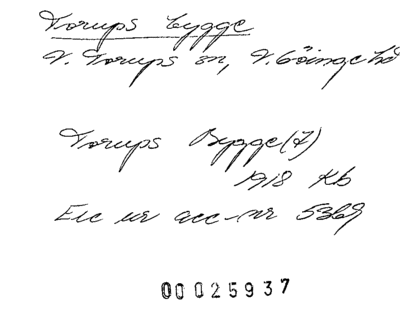 Torups bygge
V. Torups sn, V. Göinge hd
Torups Bygge (7)
1918 Kb
Exc ur acc-nr 5369
00025937